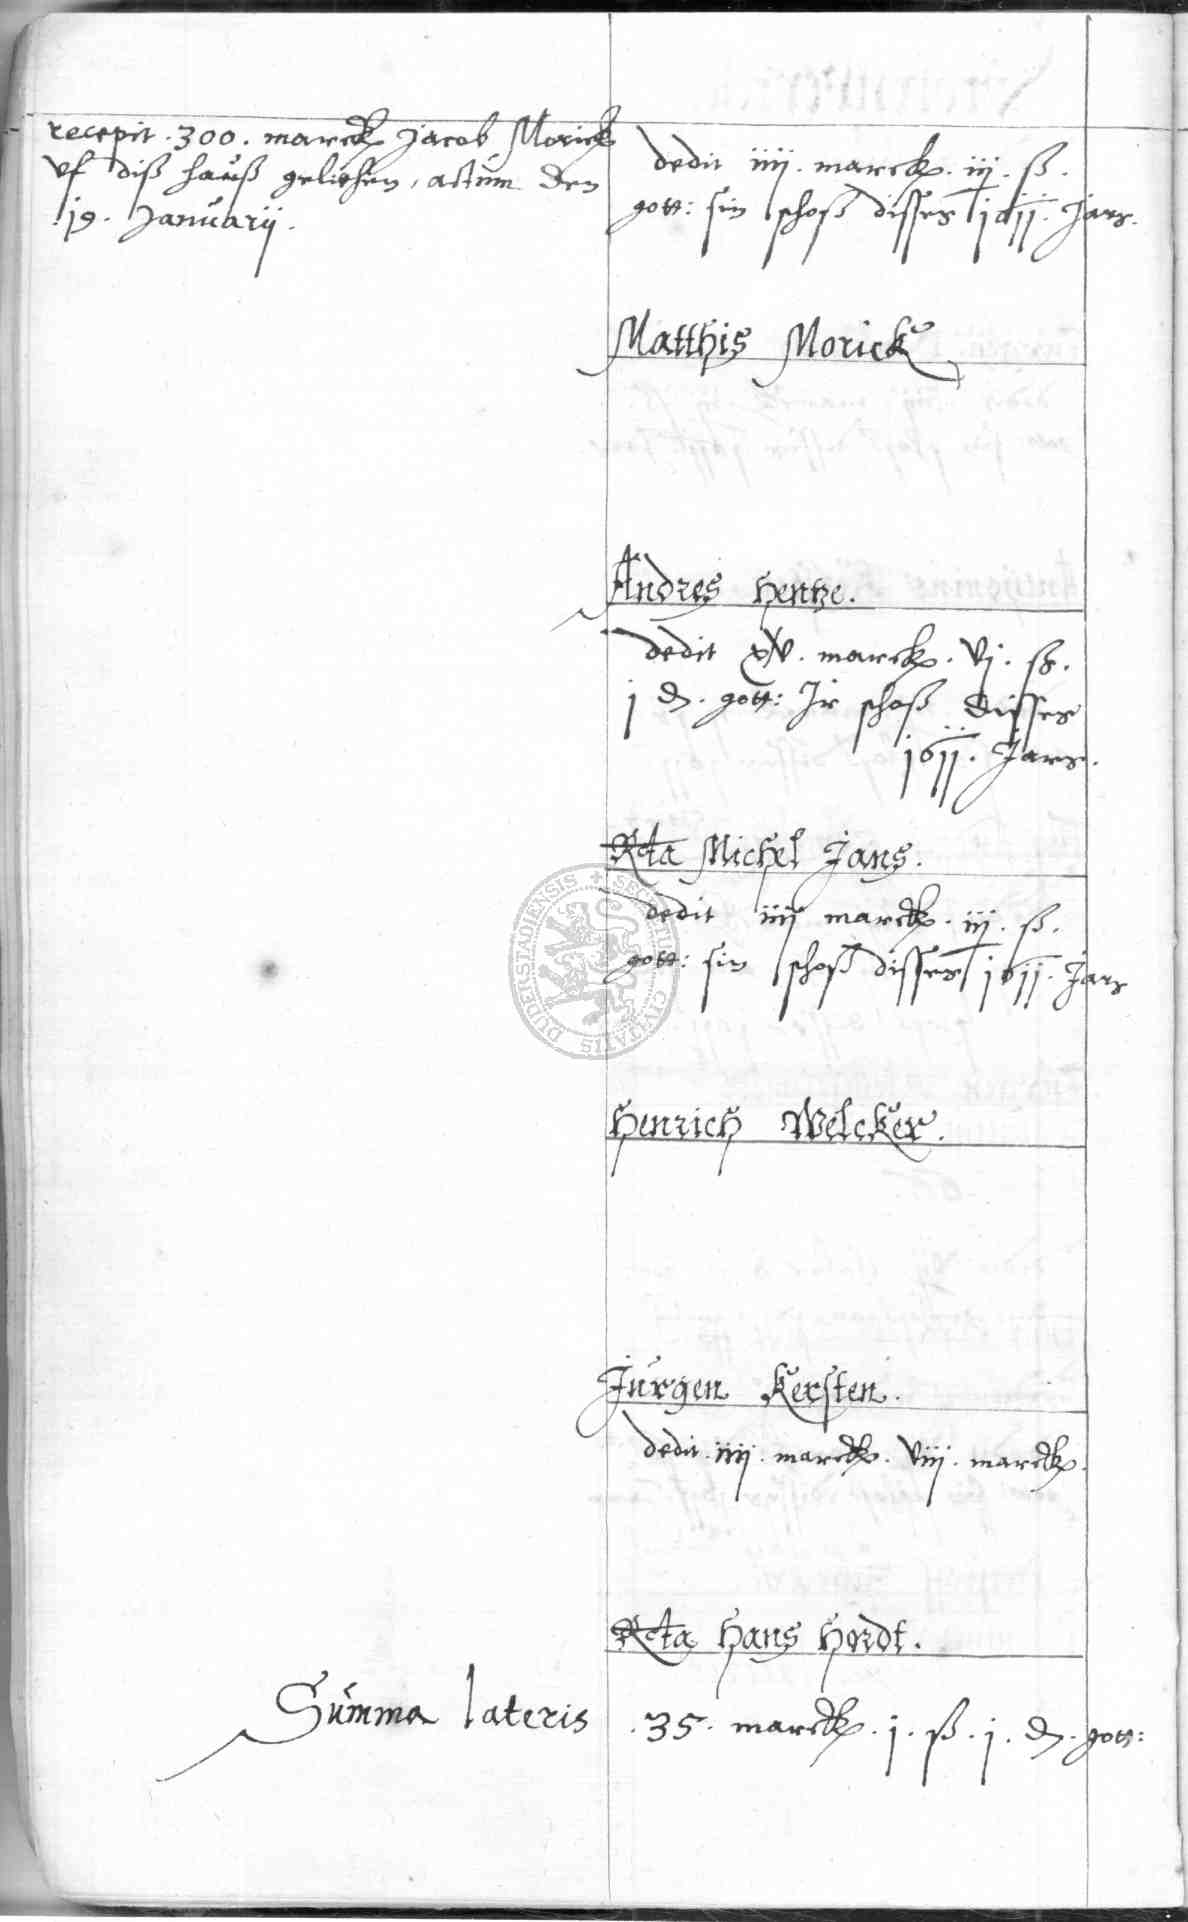 recepit .300. marck Jacob Morick
uf diß hauß geliehen, actum den
19. Januarij.
dedit iiij. marck. iij. ß.
gott: sin schoß disses 1611. Jars.
Matthis Morick
Andres Hentze.
dedit xv. marck. vj. ß.
j d. gott: Ir schoß disses
1611. Jars.
Rcta Michel Jans.
dedit iiij marck. iij. ß.
gott: sin schoß disses 1611. Jars
Henrich Welcker.
Jurgen Kersten.
dedit iiij. marck. viij. marck.
Rcta Hans Hordt.
Summa lateris .35. marck. j. ß. j. d. gott:
SECRETUM CIVITATIS DUDERSTADIENSIS